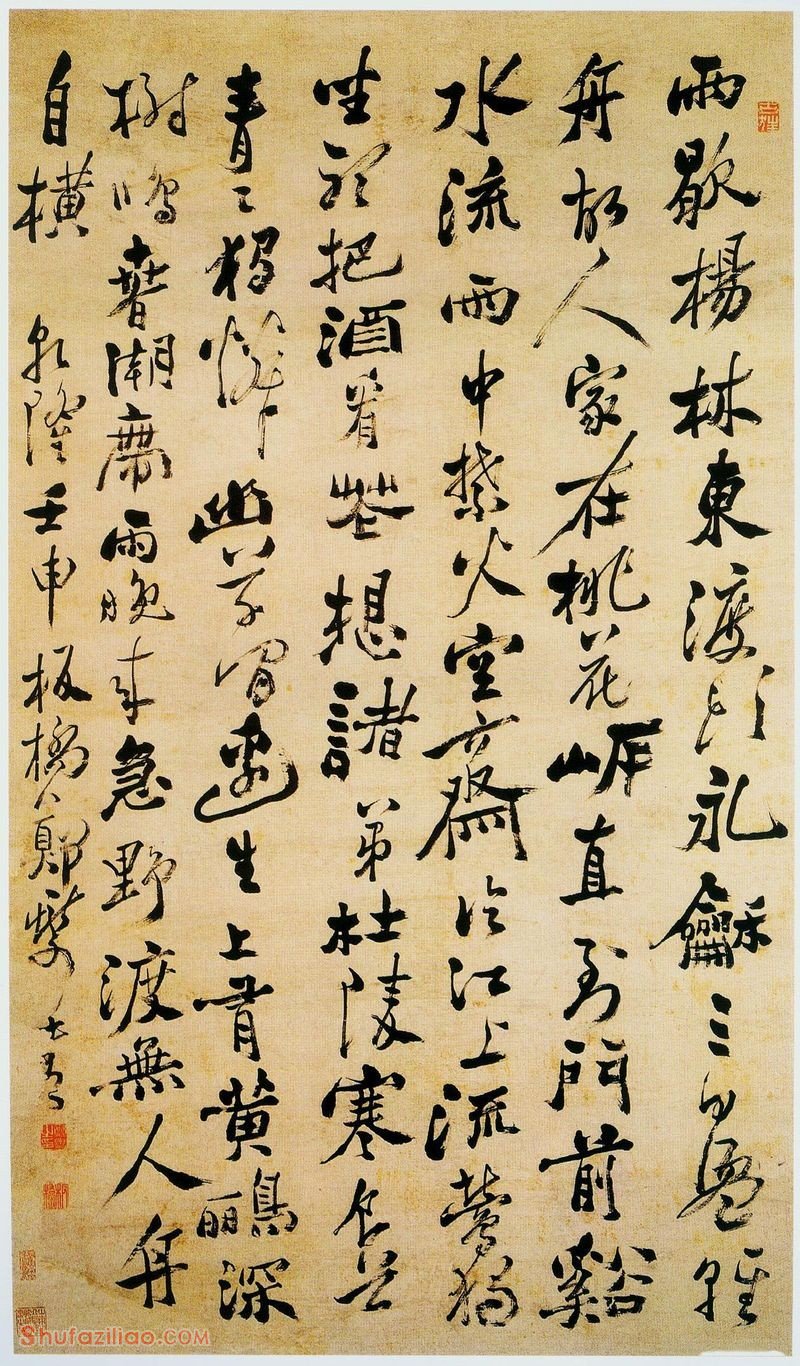 雨歇楊林東渡頭永龢三日盪輕
舟故人家在桃花岸直到門前谿
水流雨中禁火空齋冷江上流鶯獨
坐聽把酒看花想諸弟杜陵寒食草
青〻獨憐幽草澗邊生上有黃鸝深
樹鳴春潮帶雨晚來急野渡無人舟
自橫 乾隆壬申板橋鄭燮
Shufaziliao.COM